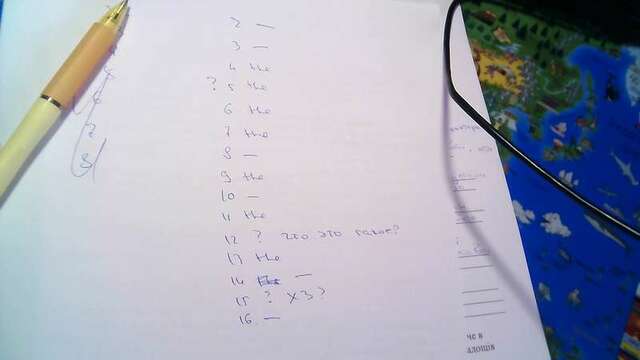 2 —
3 —
4 the
? 5 the
6 the
7 the
8 —
9 the
10 —
11 the
12 ? что это такое?
13 the
14 —
15 ? ХЗ?
16 —
че в